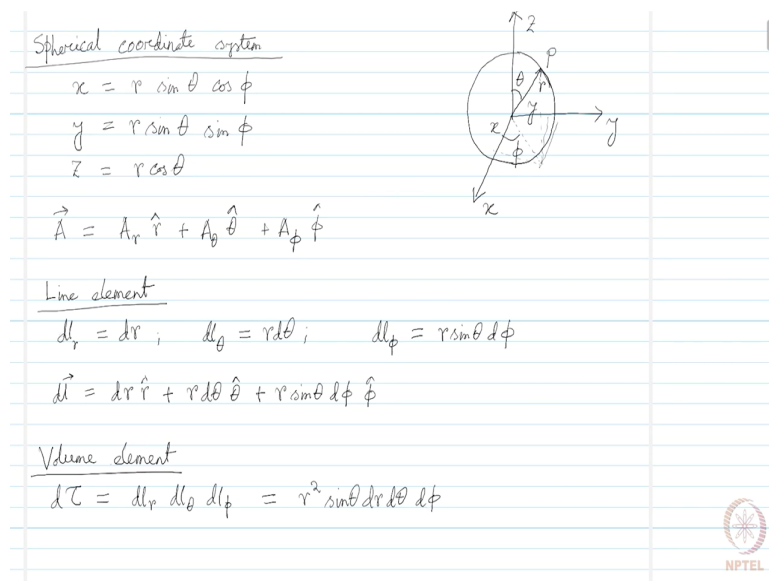 Spherical coordinate system
x = r sin θ cos ϕ
y = r sin θ sin ϕ
z = r cos θ
A⃗ = A_r r̂ + A_θ θ̂ + A_ϕ ϕ̂
Line element
dl_r = dr ; dl_θ = rdθ ; dl_ϕ = r sinθ dϕ
dl⃗ = dr r̂ + r dθ θ̂ + r sinθ dϕ ϕ̂
Volume element
dτ = dl_r dl_θ dl_ϕ = r² sinθ dr dθ dϕ
z
P
θ
r
y
x
y
ϕ
x
NPTEL